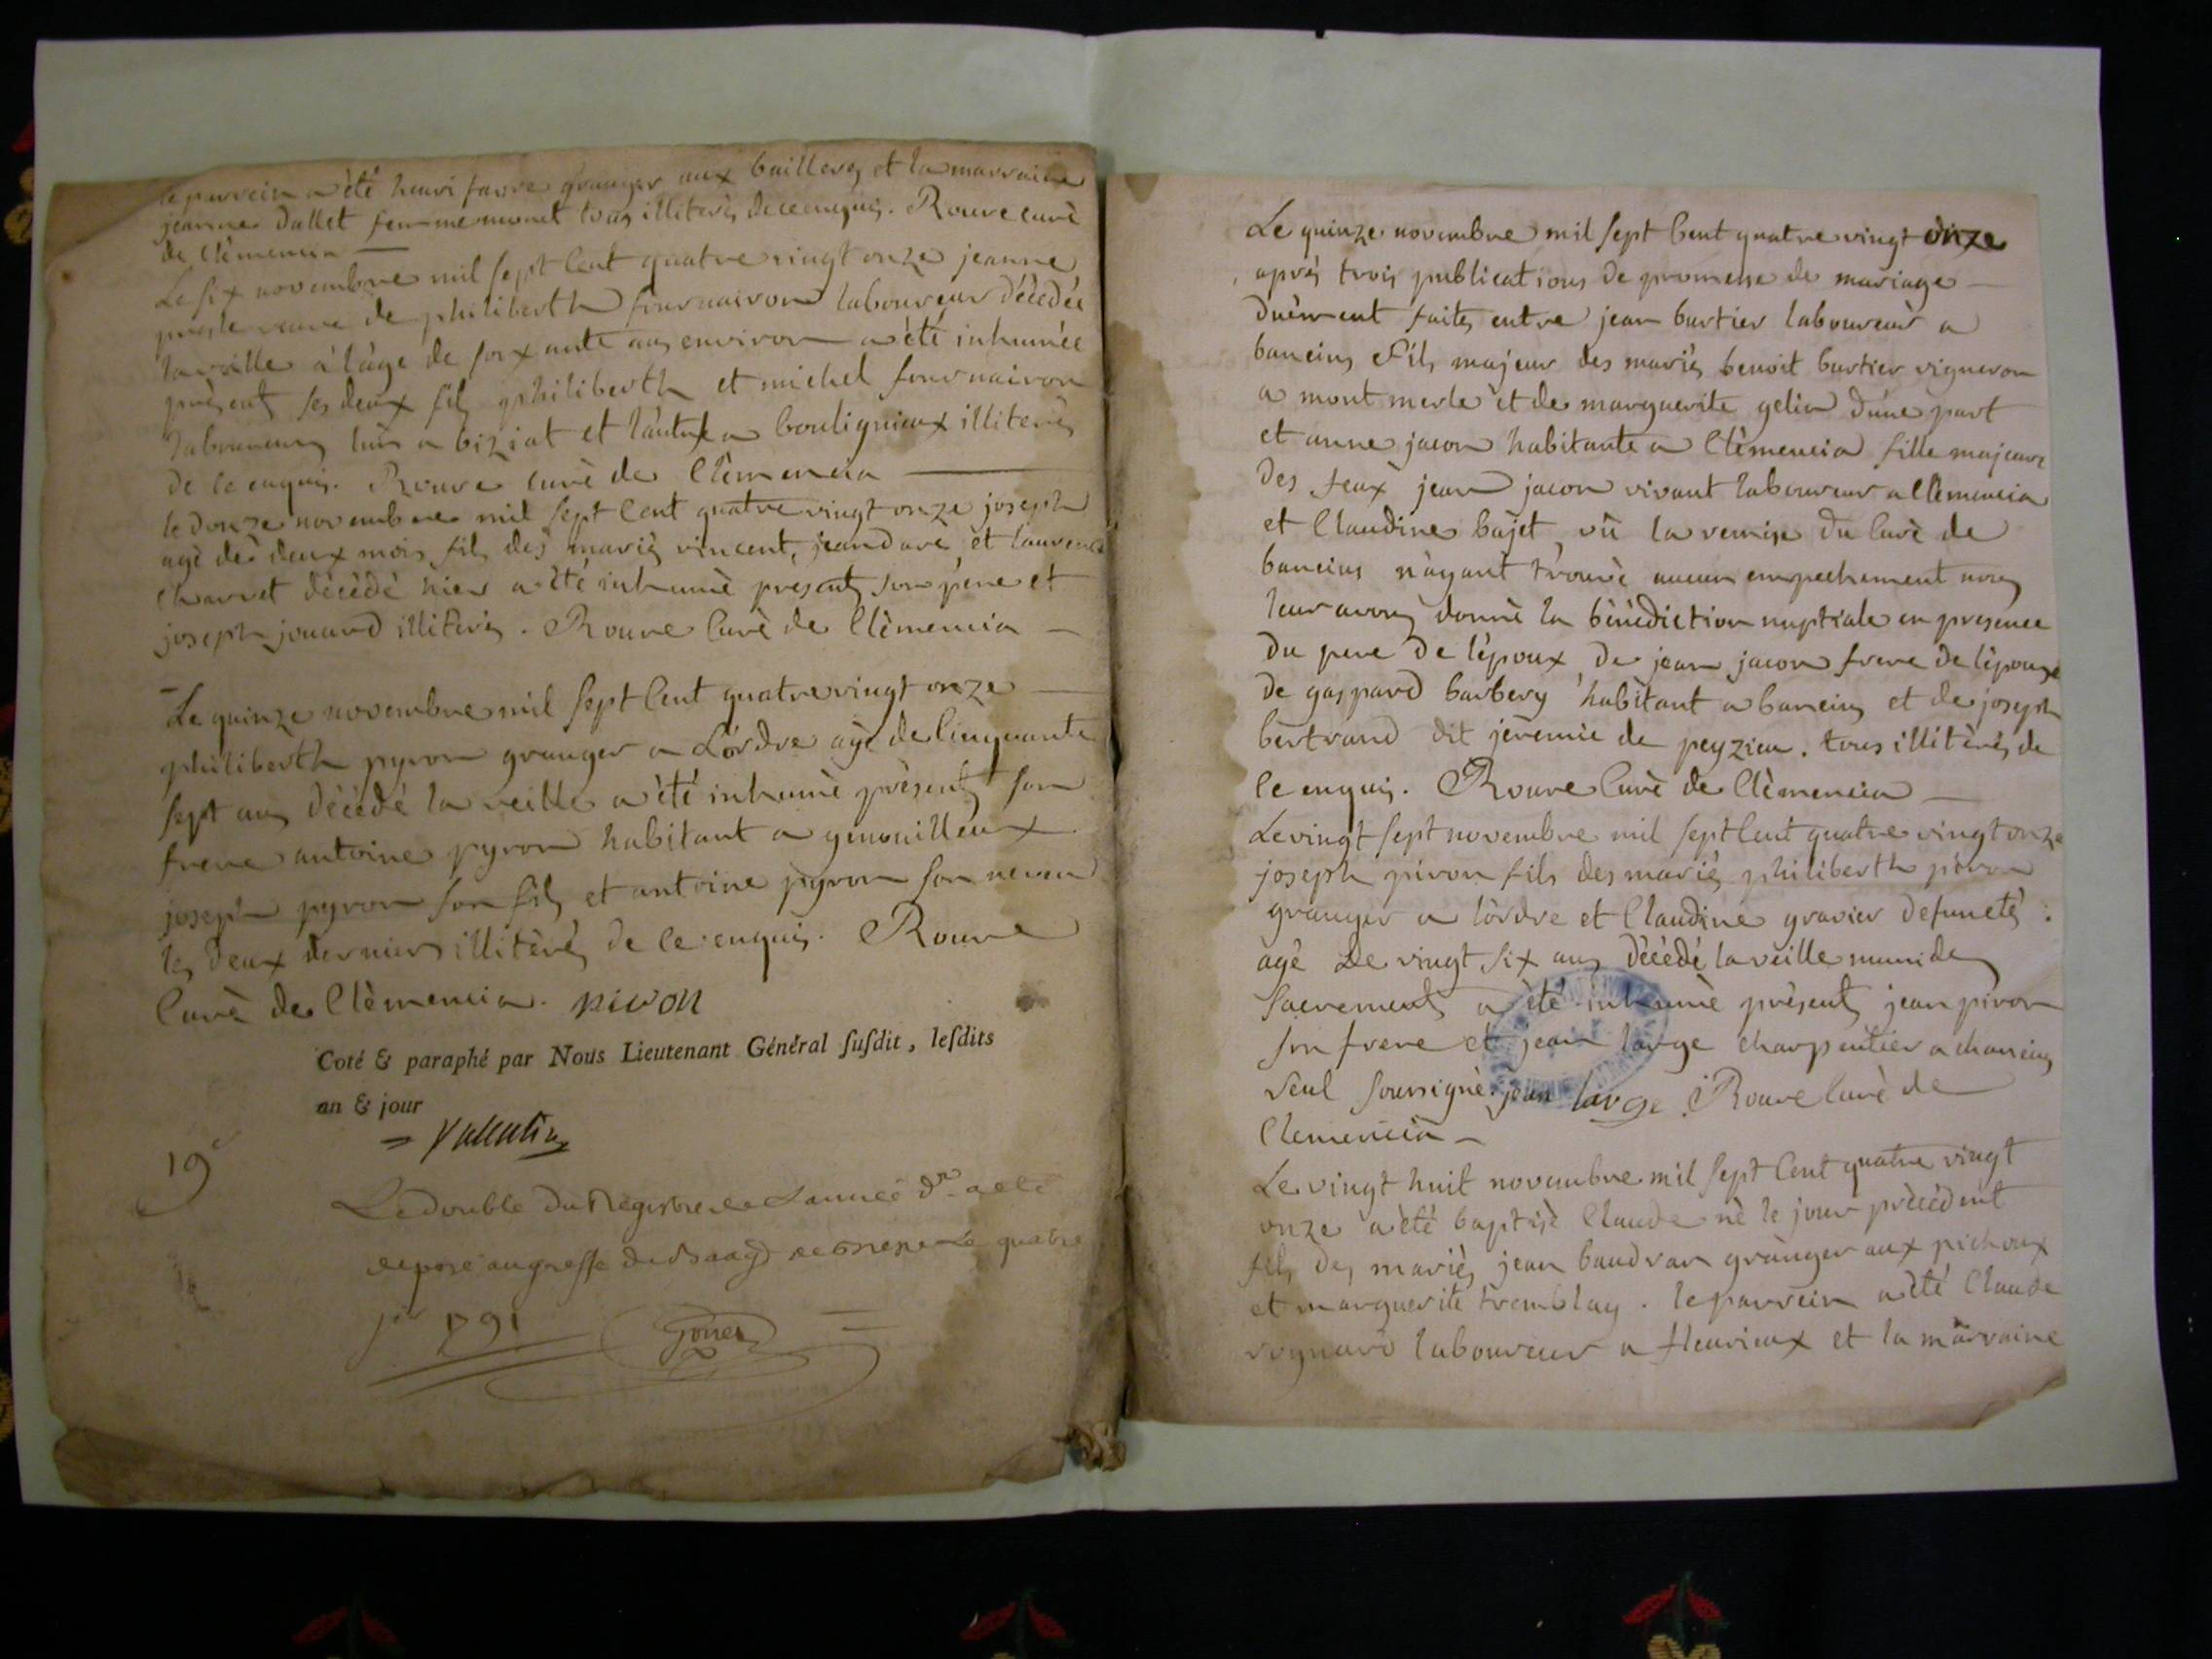 le parrein a été henri favre granger aux baillores et la marraine
jeanne dallet femme monet tous illiterés de ce enquis. Rouve curé
de Clèmencia
Le six novembre mil sept Cent quatre vingt onze jeanne
veuve de philiberth fournairon laboureur décédée
la veille à l'âge de soixante ans environ a été inhumée
présents ses deux fils philiberth et michel fournairon
laboureurs l'un a biziat et l'autre a boulignieux illiterés
de ce enquis. Rouve curè de Clèmencia
le douze novembre mil sept Cent quatre vingt onze joseph
agé de deux mois fils des mariés vincent jeandare et laurence
Charvet décédé hier a été inhumè presents son pere et
joseph jouard illiterés. Rouve Curè de Clèmencia
Le quinze novembre mil sept Cent quatre vingt onze
philiberth pyron granger a L'ordre agé de Cinquante
sept ans décédé la veille a été inhumè présents son
frere antoine pyron habitant a genouilleux
joseph pyron son fils et antoine pyron son neveu
les deux derniers illitèrés de ce enquis. Rouve
Curè de Clèmencia. pivon
Coté & paraphé par Nous Lieutenant Général susdit, lesdits
an & jour
= Valentin
19e
Le double du Registre de L'année dre a eté
deposé au greffe de Bourg le quatre
jer 1791
Le quinze novembre mil sept Cent quatre vingt onze
aprés trois publications de promesse de mariage
duèment faites entre jean bartier laboureur a
baneins Fils majeur des mariés benoit bartier vigneron
a mont merle et de marguerite gelin d'une part
et anne jacon habitante a Clèmencia fille majeure
des feux jean jacon vivant laboureur a Clèmencia
et Claudine bajet, vû la remise du Curè de
baneins n'ayant trouvè aucun empechement nous
leur avons donnè la bènèdiction nuptiale en presence
du pere de l'èpoux, de jean jacon frere de l'èpouse
de gaspard barbery habitant a baneins et de joseph
bertrand dit jèremie de peyzieu. tous illitèrés de
ce enquis. Rouve Curè de Clèmencia
Le vingt sept novembre mil sept Cent quatre vingt onze
joseph piron fils des mariés philiberth piron
granger a lordre et Claudine gravier defunctés
àgé de vingt six ans décédé la veille muni des
Sacrements a été inhumè présents jean piron
son frere et jean large charpentier a chaneins
seul soussignè. jean large. Rouve Curè de
Clemencia
Le vingt huit novembre mil sept Cent quatre vingt
onze a été baptisè Claude nè le jour prècèdent
fils des mariés jean baudran granger aux pichoux
et marguerite tremblay. le parrein a été Claude
roynard laboureur a fleurieux et la marraine